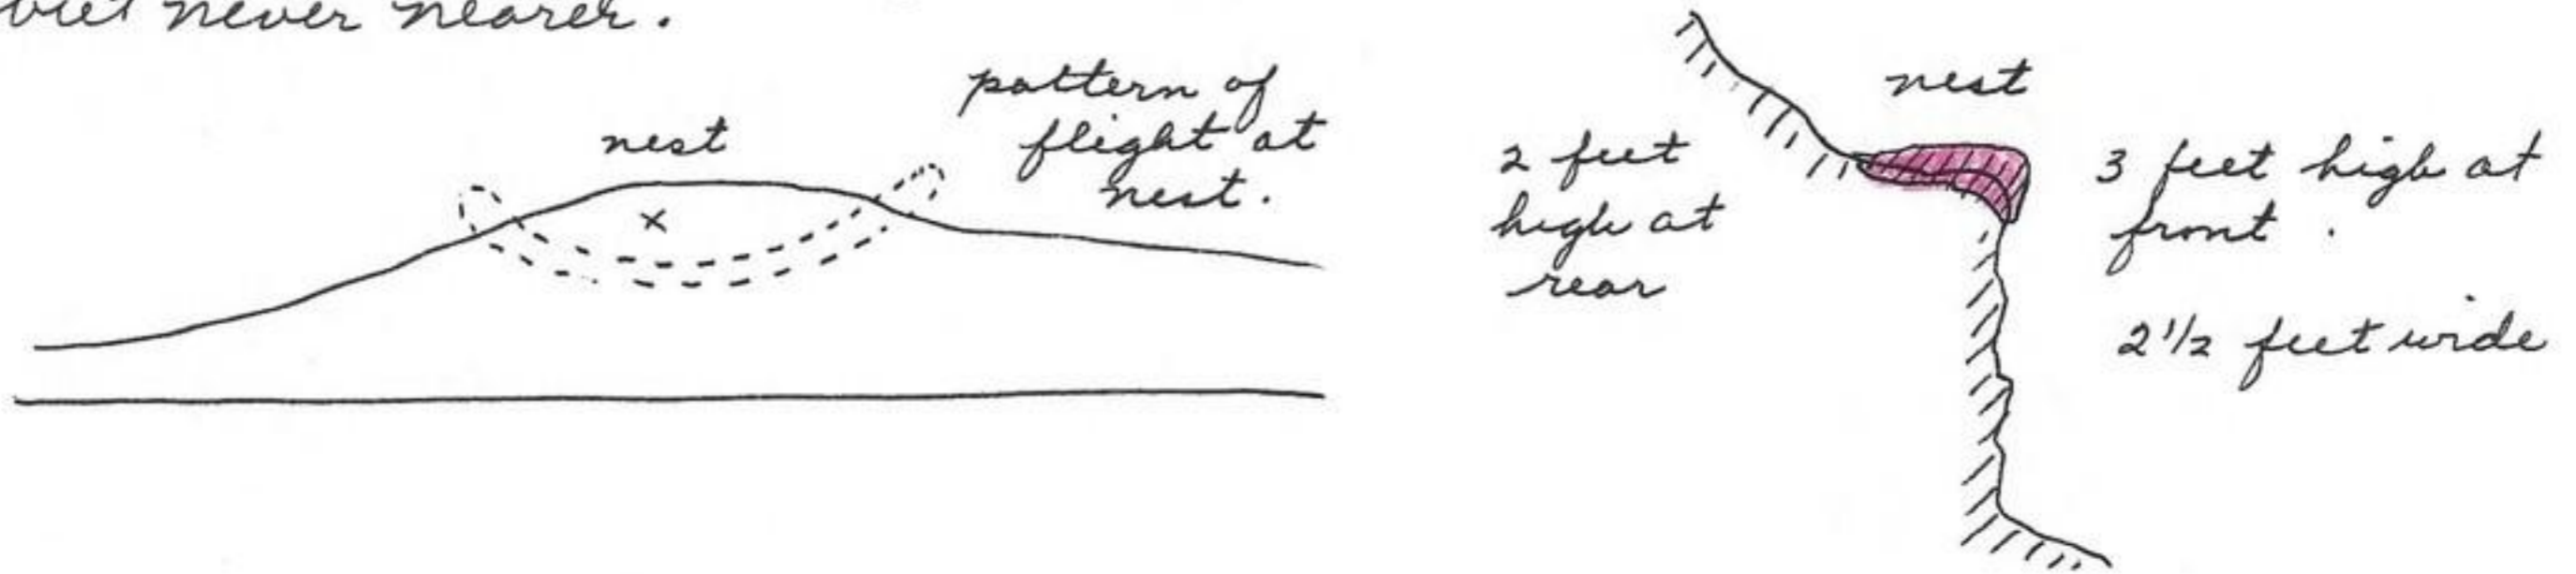 but never nearer.
nest
pattern of
flight at
nest.
nest
2 feet
high at
rear
3 feet high at
front.
2 1/2 feet wide